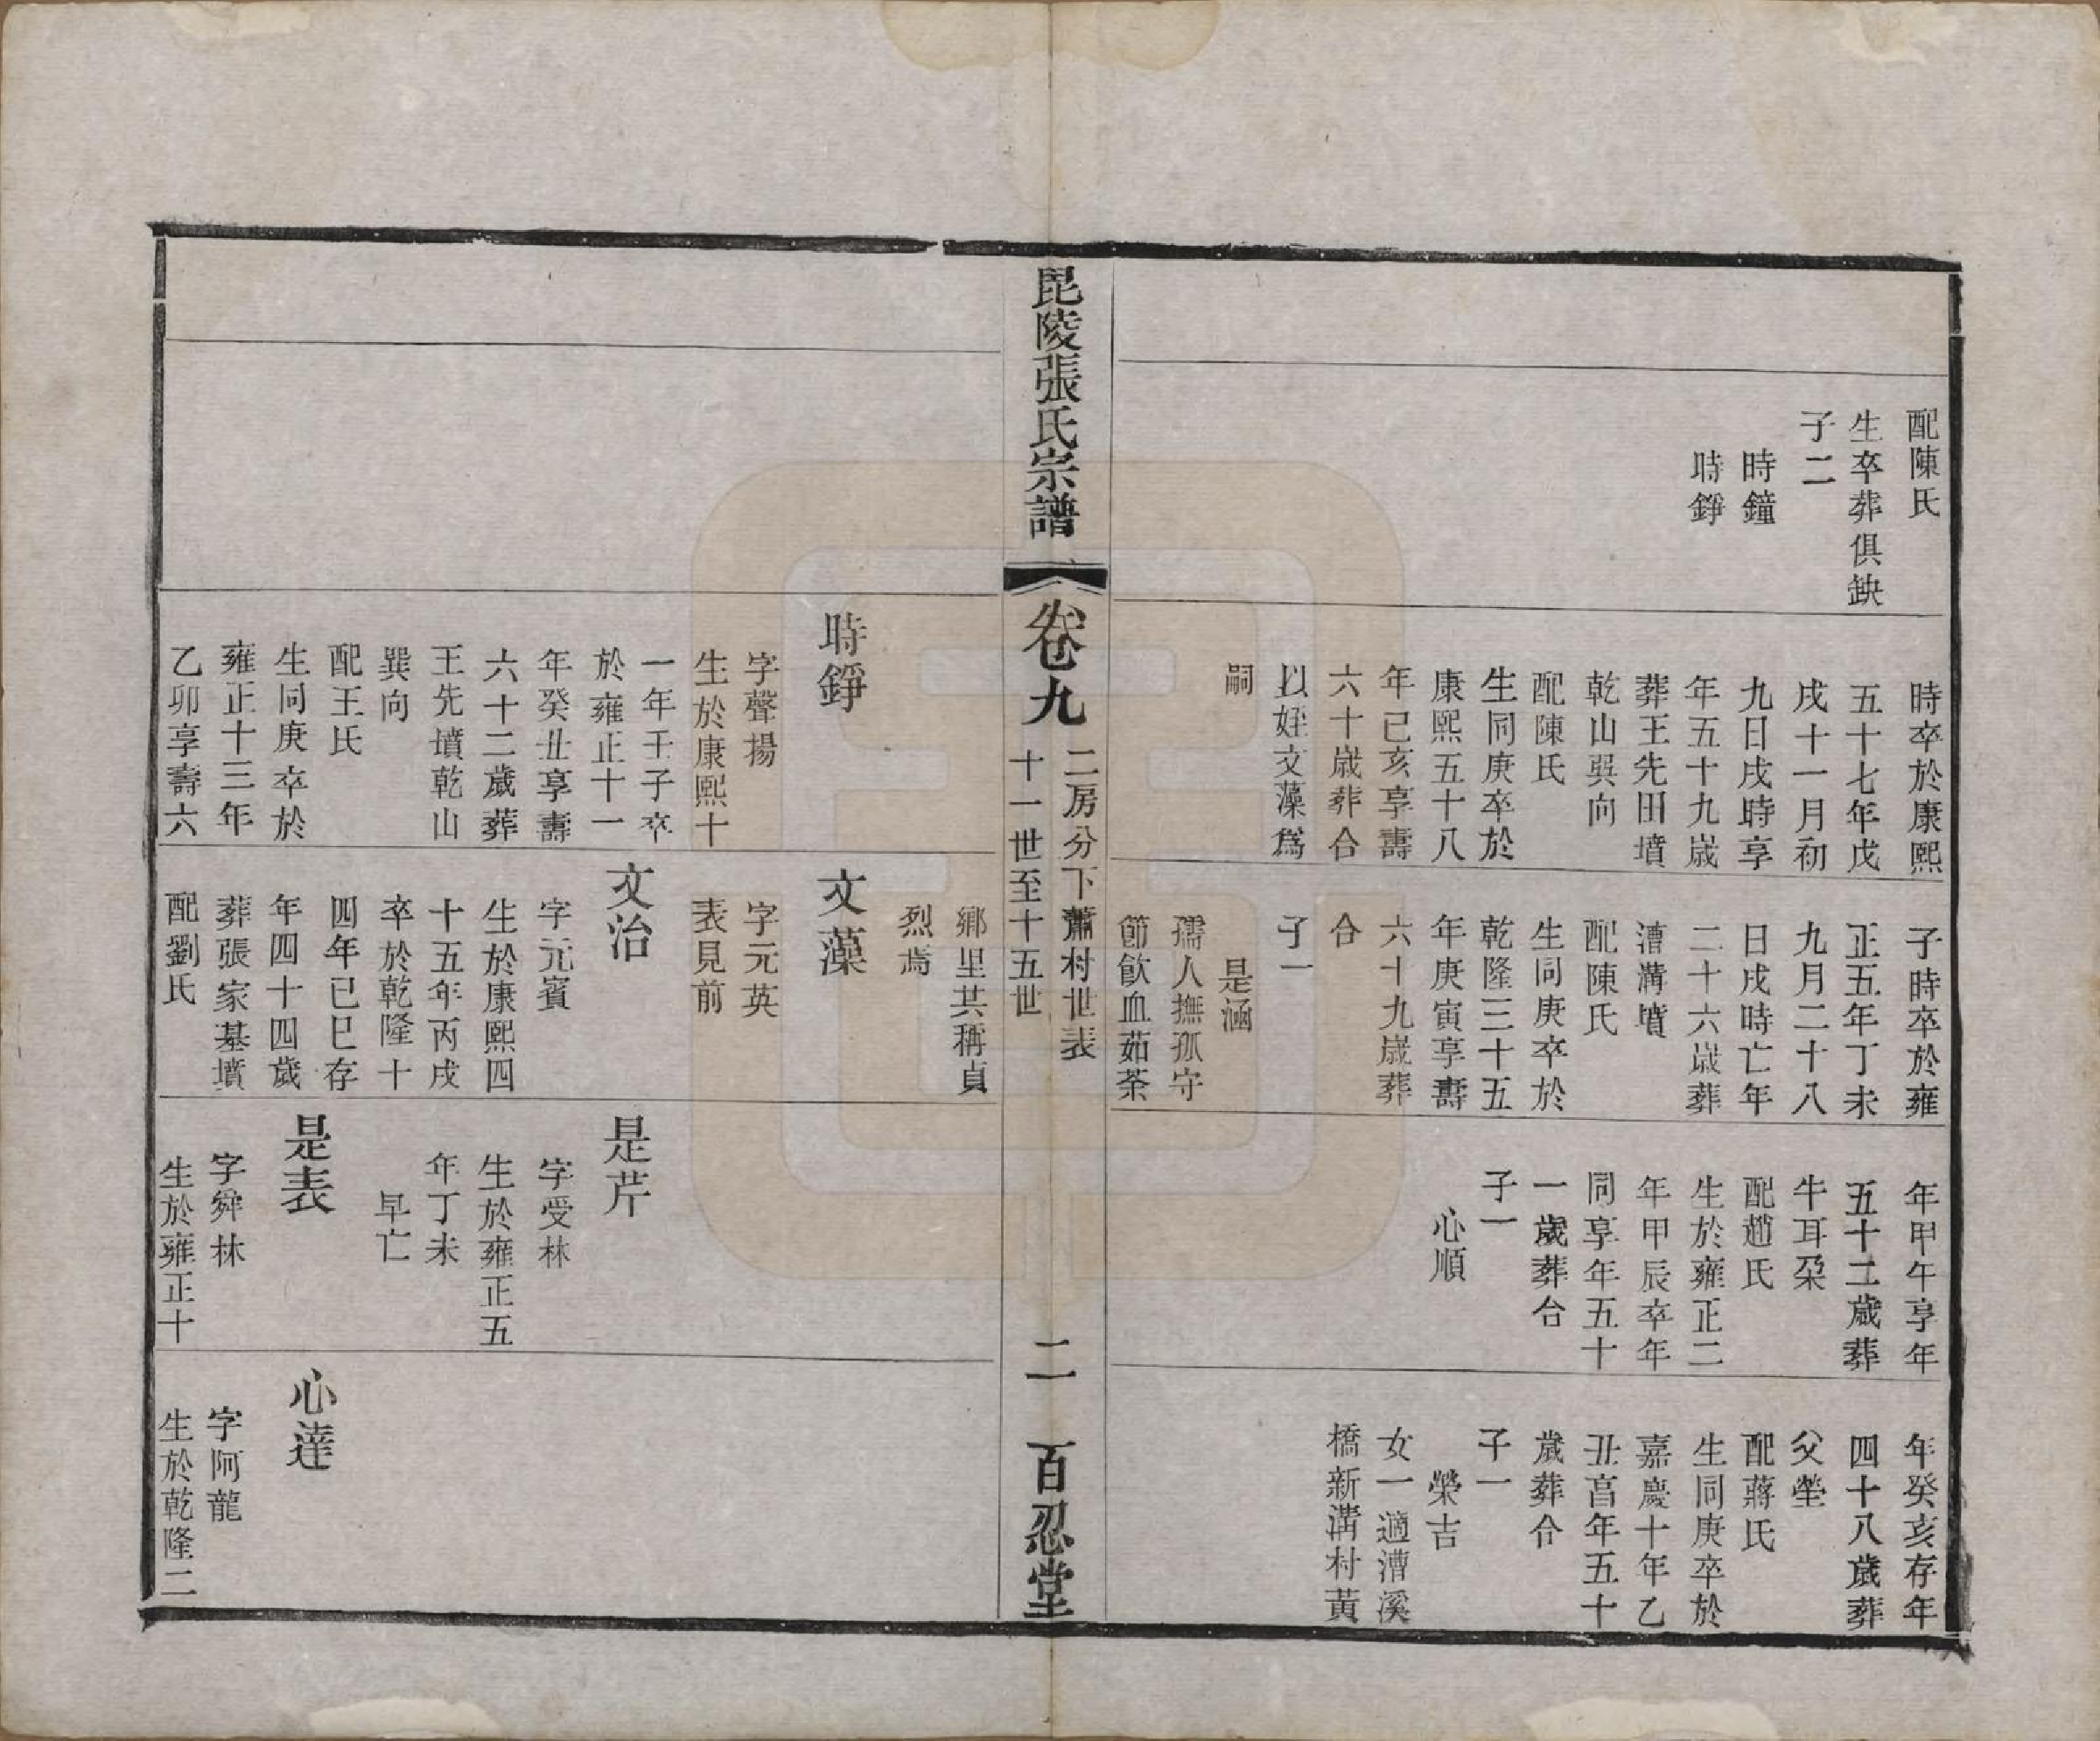 配陳氏
生卒葬俱缺
子二
時鐘
時錚
時卒於康熙
五十七年戊
戌十一月初
九日戌時享
年五十九歲
葬王先田墳
乾山巽向
配陳氏
生同庚卒於
康熙五十八
年己亥享壽
六十歲葬合
以姪文藻爲
嗣
子時卒於雍
正五年丁未
九月二十八
日戌時亡年
二十六歲葬
漕溝墳
配陳氏
生同庚卒於
乾隆三十五
年庚寅享壽
六十九歲葬
合
子一
是涵
孺人撫孤守
節飲血茹荼
年甲午享年
五十二歲葬
牛耳朶
配趙氏
生於雍正二
年甲辰卒年
同享年五十
一歲葬合
子一
心順
年癸亥存年
四十八歲葬
父塋
配蔣氏
生同庚卒於
嘉慶十年乙
丑亯年五十
歲葬合
子一
榮吉
女一適漕溪
橋新溝村黃
毘陵張氏宗譜
卷九
二房分下蕭村世表
十一世至十五世
二
百忍堂
時錚
字聲揚
生於康熙十
一年壬子卒
於雍正十一
年癸丑享壽
六十二歲葬
王先墳乾山
巽向
配王氏
生同庚卒於
雍正十三年
乙卯享壽六
鄉里共稱貞
烈焉
文藻
字元英
表見前
文治
字元賓
生於康熙四
十五年丙戌
卒於乾隆十
四年己巳存
年四十四歲
葬張家基墳
配劉氏
是芹
字受林
生於雍正五
年丁未
早亡
是表
字舜林
生於雍正十
心達
字阿龍
生於乾隆二